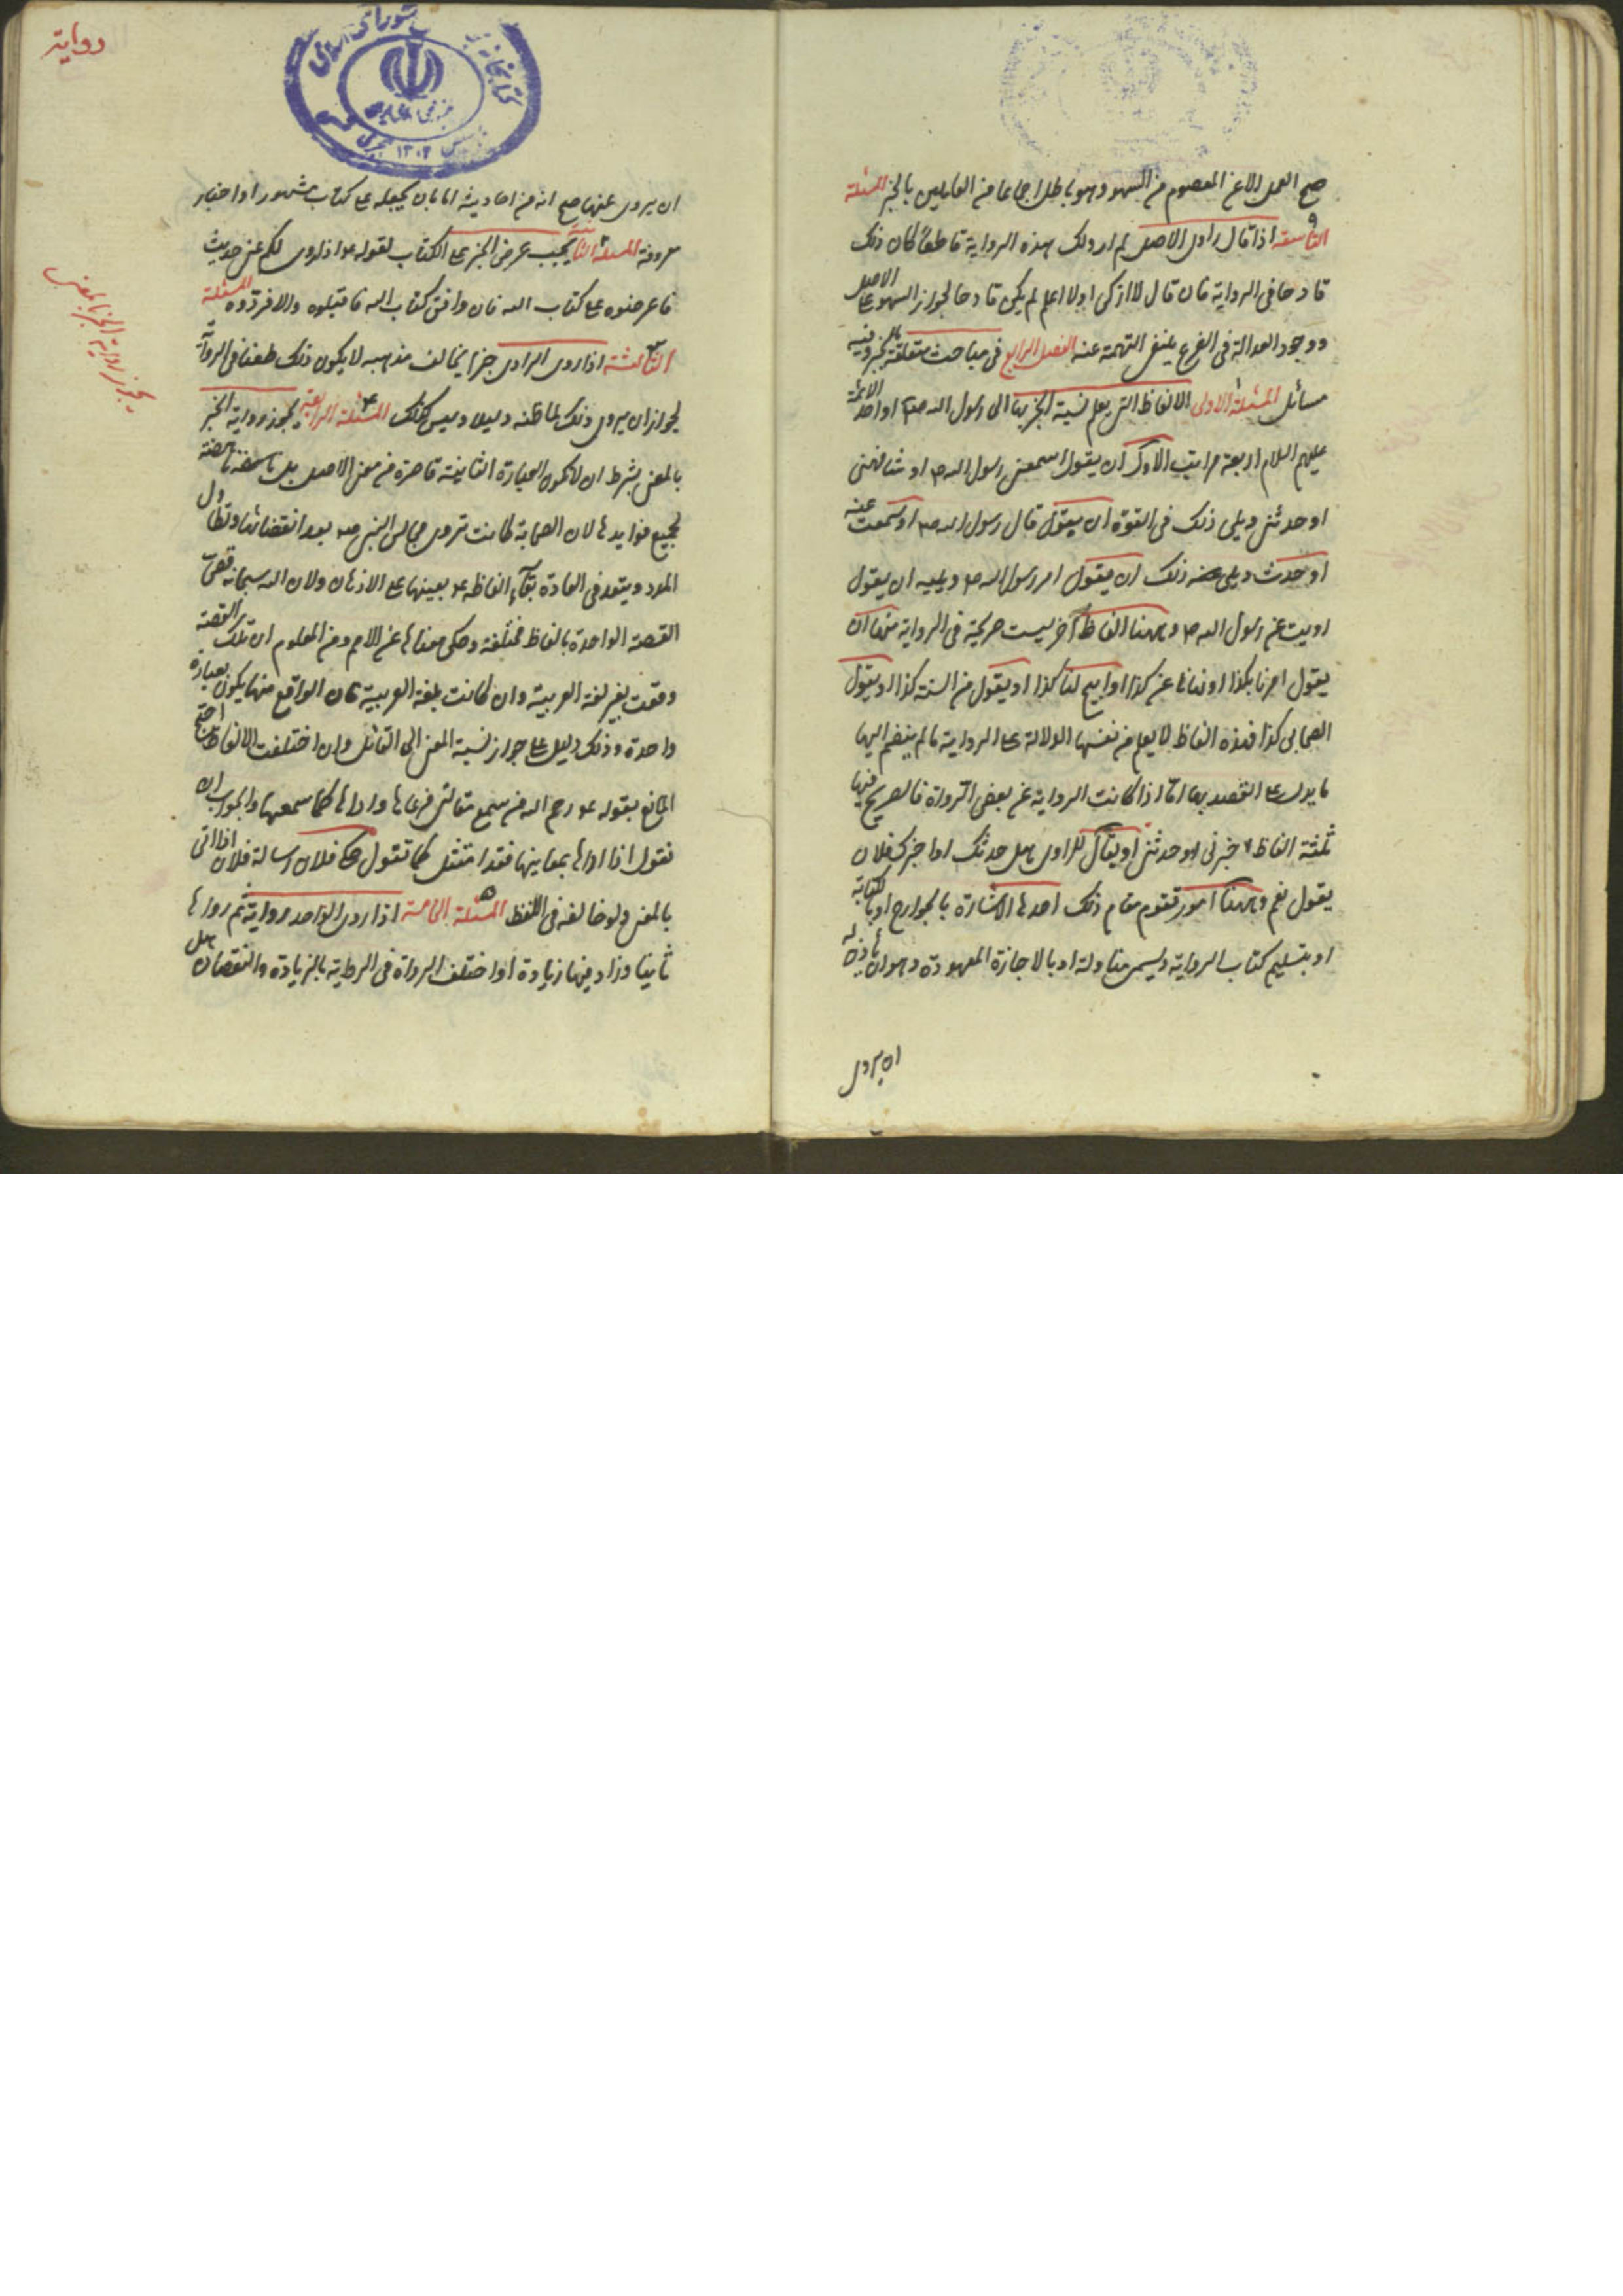 صح العمل الا عن المعصوم من السهو وهو باطل اجماعا من القايلين بالخبر المسئلة
التاسعة اذا قال راوى الاصل لم ارو لك هذه الرواية قاطعا كان ذلك
قادحا فى الرواية فان قال لا اذكر او لا اعلم لم يكن قادحا لجواز السهو على الاصل
ووجود العدالة فى الفرع ينفى التهمة عنه الفصل الرابع فى مباحث متعلقة بالخبر وفيه
مسائل المسئلة الاولى الالفاظ التى يعلم نسبة الخبر بها الى رسول الله ص او احد الائمة
عليهم السلام اربعة مراتب الاول ان يقول اسمعنى رسول الله ص او شافهنى
او حدثنى ويلى ذلك فى القوة ان يقول قال رسول الله ص او سمعت عنه
او حدث ويلى ذلك ان يقول امر رسول الله ص ويليه ان يقول
رويت عن رسول الله ص وههنا الفاظ اخر ليست صريحة فى الرواية منها ان
يقول امرنا بكذا او نهانا عن كذا او ابيح لنا كذا او يقول من السنة كذا او يقول
الصحابى كذا فهذه الفاظ لا يعلم من نفسها الدلالة على الرواية ما لم ينضم اليها
ما يدل على القصد بها امّا اذا كانت الرواية عن بعض الرواة فالصريح فيها
ثلثة الفاظ اخبرنى او حدثنى او يقال للراوى هل حدثك او اخبرك فلان
يقول نعم وههنا امور تقوم مقام ذلك احدها الاشارة بالجوارح او بالكتابة
او بتسليم كتاب الرواية ويسمى مناولة او بالاجازة المعهودة وهو ان ياذن له
ان يروى
رواية
ان يروى عنه ما صح انه من احاديثه اما بان يحيله على كتاب مشهور او اخبار
معروفة المسئلة الثانية يجب عرض الخبر على الكتاب لقوله ع اذا روى لكم عنى حديث
فاعرضوه على كتاب الله فان وافق كتاب الله فاقبلوه والا فردّوه المسئلة
الثالثة اذا روى الراوى خبرا يخالف مذهبه لا يكون ذلك طعنا فى الرواية
لجواز ان يروى ذلك لما ظنه دليلا وليس كذلك المسئلة الرابعة يجوز رواية الخبر
بالمعنى بشرط ان لا تكون العبارة الثانية قاصرة عن معنى الاصل بل ناهضة
لجميع فوايدها لان الصحابة كانت تروى مجالس النبى ص بعد انقضائها وتطاول
المدد ويبعد فى العادة بقاء الفاظه ع بعينها على الاذهان ولان الله سبحانه قصّ
القصة الواحدة بالفاظ مختلفة وحكى معناها عن الامم ومن المعلوم ان تلك القصة
وقعت بغير لغة العربية وان كانت بلغة العربية فان الواقع منها يكون بعبارة
واحدة وذلك دليل على جواز نسبة المعنى الى القائل وان اختلفت الالفاظ احتج
المانع بقوله ع رحم الله من سمع مقالتى فوعاها واداها كما سمعها والجواب ان
نقول اذا اداها بمعانيها فقد امتثل كما تقول حكى فلان رسالة فلان اذا اتى
بالمعنى ولو خالفه فى اللفظ المسئلة الخامسة اذا روى الواحد رواية ثم رواها
ثانيا وزاد فيها زيادة او اختلف الرواة فى الرواية بالزيادة والنقصان هل
يجوز رواية الخبر بالمعنى
١٣٠٢